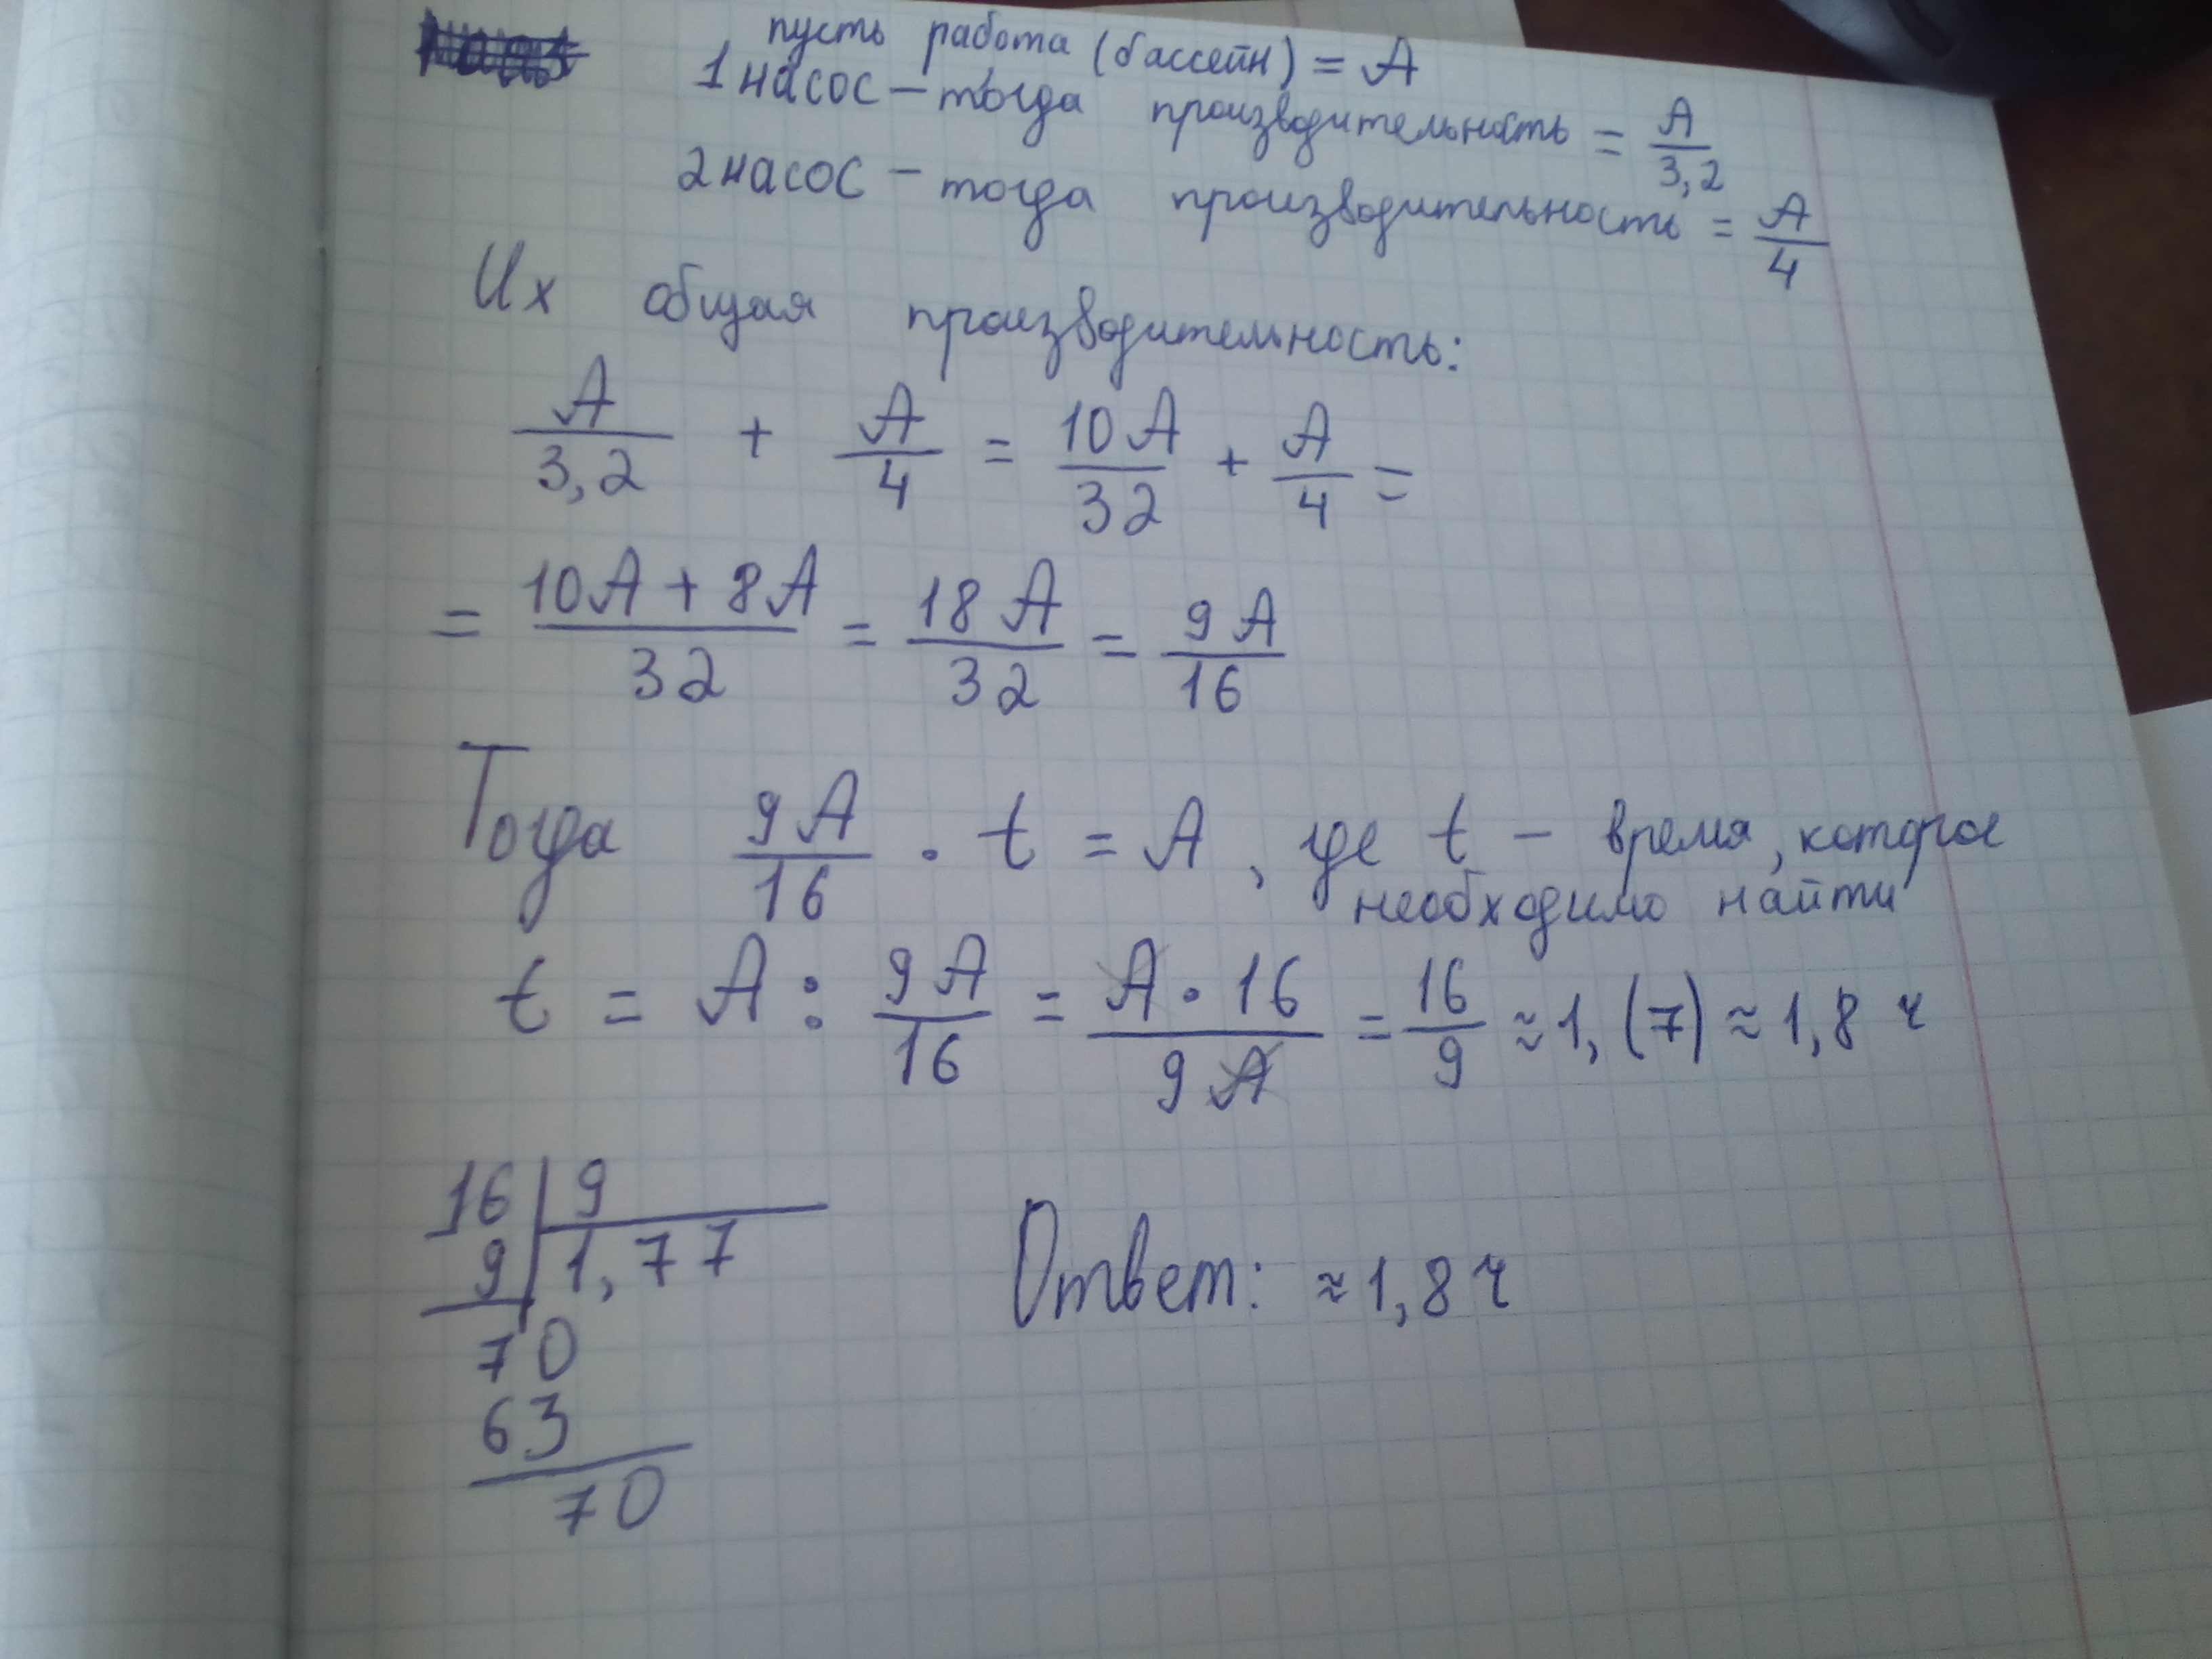 пусть работа (бассейн) = A
1 насос – тогда производительность = A/3,2
2 насос – тогда производительность = A/4
Их общая производительность:
A/3,2 + A/4 = 10A/32 + A/4 =
= 10A + 8A/32 = 18A/32 = 9A/16
Тогда 9A/16 · t = A, где t – время, которое
необходимо найти
t = A : 9A/16 = A · 16/9A = 16/9 ≈ 1,(7) ≈ 1,8 ч
16 | 9
9 | 1,77
70
63
70
Ответ: ≈ 1,8 ч